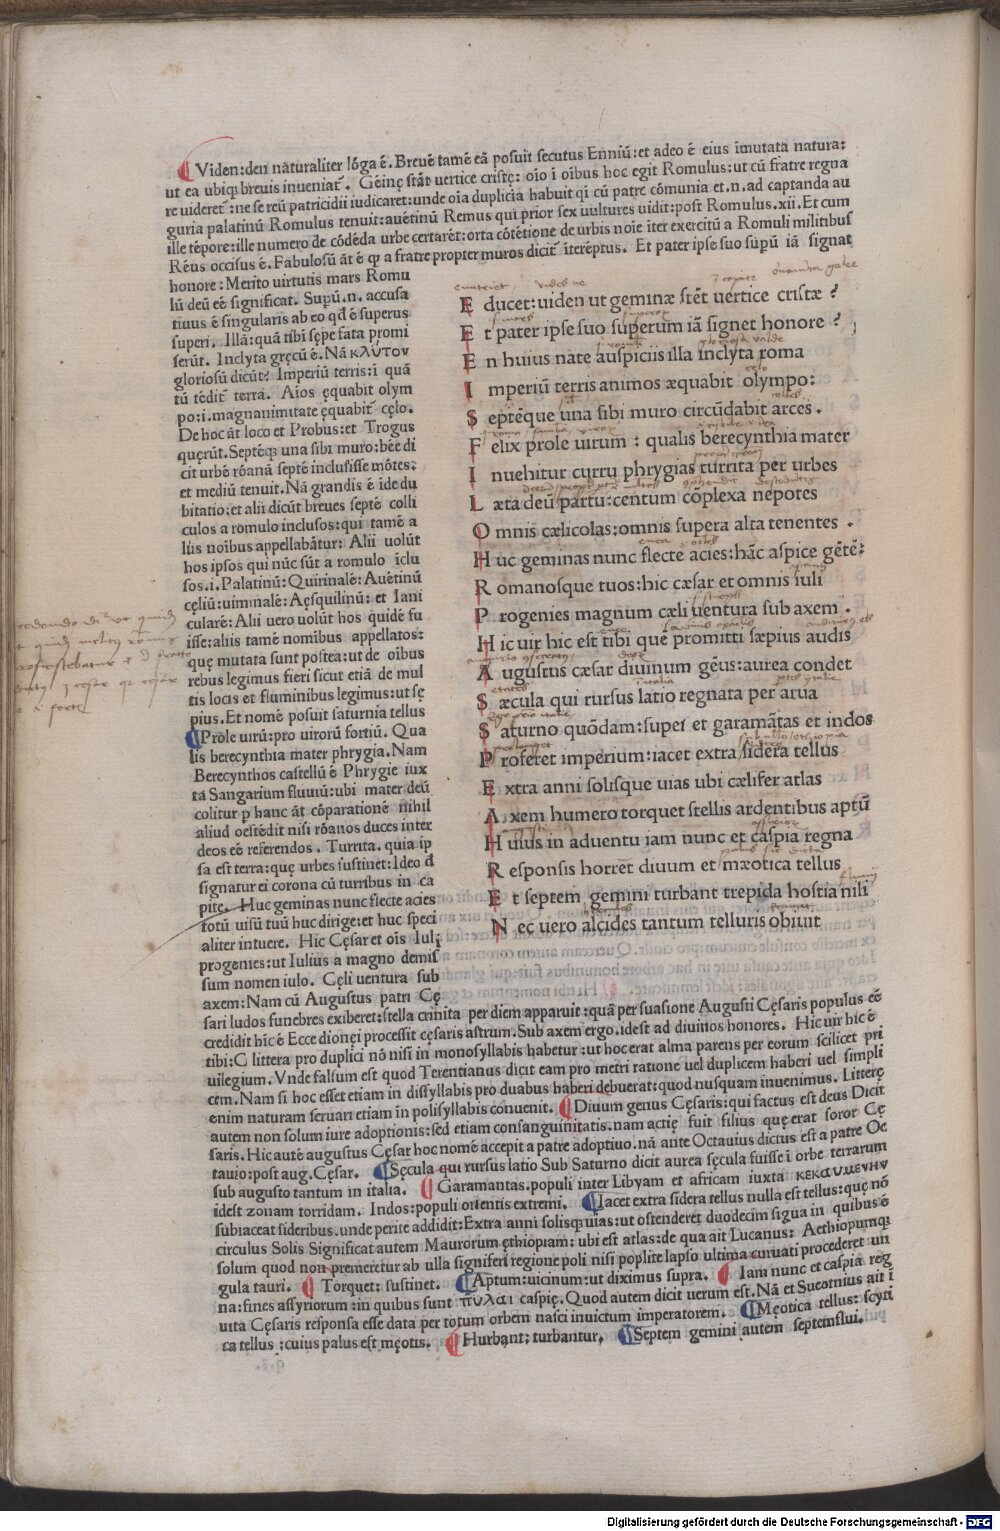 Viden:den nāturaliter lōga ē. Breuē tamē eā posuit secutus Enniū:et adeo ē eius īmutata natura:
ut ea ubiq; breuis inueniat̃. Gēinę stāt uertice cristę: oīo ī oībus hoc egit Romulus:ut cū fratre regna
re uideret̃:ne se reū patricidii iudicaret:unde oīa duplicia habuit q̃ cū patre cōmunia et.n.ad captanda au
guria palatinū Romulus tenuit:auētinū Remus qui prior sex uultures uidit:post Romulus.xii.Et cum
ille tēpore:ille numero de cōdēda urbe certarēt:orta cōtētione de urbis noīe īter exercitū a Romuli militibus
Rēus occisus ē.Fabulosū āt ē q̃ a fratre propter muros dicit̃ īterēptus. Et pater ipse suo supū iā signat
honore:Merito uirtutis mars Romu
lū deū eē significat. Supū.n. accusa
tiuus ē singularis ab eo qđ ē superus
superi. Illā:quā tibi sępe fata promi
serūt. Inclyta gręcū ē. Nā κλυτον
gloriosū dicūt? Imperiū terris:i quā
tū tēdit̃ terra. Aīos ęquabit olym
po:i.magnanimitate ęquabit̃ cęlo.
De hoc āt loco et Probus:et Trogus
quęrūt. Septēq; una sibi muro:bēe di
cit urbē rōanā septē inclusisse mōtes:
et mediū tenuit. Nā grandis ē īde du
bitatio:et alii dicūt breues septē colli
culos a romulo inclusos:qui tamē a
liis noībus appellabātur: Alii uolūt
hos ipsos qui nūc sūt a romulo īclu
sos.i.Palatinū:Quirinalē:Auētinū
cęliū:uiminalē:Aęsquilinū: et Iani
cularē:Alii uero uolūt hos quidē fu
isse:aliis tamē nomibus appellatos:
quę mutata sunt postea:ut de oībus
rebus legimus fieri sicut etiā de mul
tis locis et fluminibus legimus:ut sę
pius.Et nomē posuit saturnia tellus
Prole uirū:pro uirorū fortiū. Qua
lis berecynthia mater phrygia.Nam
Berecynthos castellū ē Phrygie iux
ta Sangarium fluuiū:ubi mater deū
colitur p hanc āt cōparationē nihil
aliud oestēdit nisi rōanos duces inter
deos eē referendos. Turrita. quia ip
sa est terra:quę urbes sustinet:Ideo đ
signatur ei corona cū turribus in ca
pite. Huc geminas nunc flecte acies
totū uisū tuū huc dirige:et huc speci
aliter intuere. Hic Cęsar et oīs Iuli
progenies:ut Iulius a magno demis
sum nomen iulo. Cęli uentura sub
axem:Nam cū Augustus patri Cę
E ducet:uiden ut geminæ stēt uertice cristæ ?
E t pater ipse suo superum iā signet honore ?
E n huius nate auspiciis illa inclyta roma
I mperiū terris animos æquabit olympo:
S eptēque una sibi muro circūdabit arces.
F elix prole uirum : qualis berecynthia mater
I nuehitur curru phrygias turrita per urbes
L æta deū partu:centum cōplexa nepotes
O mnis cælicolas:omnis supera alta tenentes .
H uc geminas nunc flecte acies:hāc aspice gētē:
R omanosque tuos:hic cæsar et omnis iuli
P rogenies magnum cæli uentura sub axem .
H ic uir hic est tibi quē promitti sæpius audis
A ugustus cæsar diuinum gēus:aurea condet
S æcula qui rursus latio regnata per arua
S aturno quōdam:super et garamātas et indos
P roferet imperium:iacet extra sidera tellus
E xtra anni solisque uias ubi cælifer atlas
A xem humero torquet stellis ardentibus aptū
H uius in aduentu iam nunc et caspia regna
R esponsis horrēt diuum et mæotica tellus
E t septem gemini turbant trepida hostia nili
N ec uero alcides tantum telluris obiuit
sari ludos funebres exiberet:stella crinita per diem apparuit:quā per suasione Augusti Cęsaris populus eē
credidit hic ē Ecce dionęi processit cęsaris astrum.Sub axem ergo.idest ad diuinos honores. Hic uir hic ē
tibi:C littera pro duplici nō nisi in monosyllabis habetur:ut hoc erat alma parens per eorum scilicet pri
uilegium.Vnde falsum est quod Terentianus dicit eam pro metri ratione uel duplicem haberi uel simpli
cem.Nam si hoc esset etiam in dissyllabis pro duabus haberi debuerat:quod nusquam inuenimus. Litterę
enim naturam seruari etiam in polisyllabis conuenit. Diuum genus Cęsaris:qui factus est deus Dicit
autem non solum iure adoptionis:sed etiam consanguinitatis.nam actię fuit filius quę erat soror Cę
saris.Hic autē augustus Cęsar hoc nomē accepit a patre adoptiuo.nā ante Octauius dictus est a patre Oc
tauio:post aug.Cęsar. Sęcula qui rursus latio Sub Saturno dicit aurea sęcula fuisse ī orbe terrarum
sub augusto tantum in italia. Garamantas.populi inter Libyam et africam iuxta κεκαυμενην
idest zonam torridam. Indos:populi orientis extremi. Iacet extra sidera tellus nulla est tellus:quę nō
subiaceat sideribus.unde perite addidit:Extra anni solisq;uias:ut ostenderet duodecim signa in quibus ē
circulus Solis Significat autem Maurorum ęthiopiam: ubi est atlas:de qua ait Lucanus: Aethiopumq;
solum quod non premeretur ab ulla signiferi regione poli nisi poplite lapso ultima curuati procederet un
gula tauri. Torquet: sustinet. Aptum:uicinum:ut diximus supra. Iam nunc et caspia reg
na:fines assyriorum:in quibus sunt πυλαι caspię.Quod autem dicit uerum est.Nā et Sueotnius ait ī
uita Cęsaris responsa esse data per totum orbem nasci inuictum imperatorem. Męotica tellus: scyti
ca tellus:cuius palus est męotis. Hurbant: turbantur. Septem gemini autem septemflui.
Digitalisierung gefördert durch die Deutsche Forschungsgemeinschaft - DFG